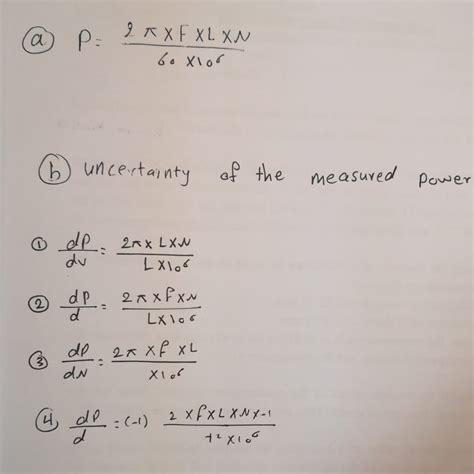 ⓐ P = 2π × F × L × N / 60 × 10⁶
ⓑ uncertainty of the measured power
① dP/dv = 2π × L × N / L × 10⁶
② dP/d = 2π × f × N / L × 10⁶
③ dP/dN = 2π × f × L / × 10⁶
④ dP/d = (-1) 2 × f × L × N × -1 / t² × 10⁶